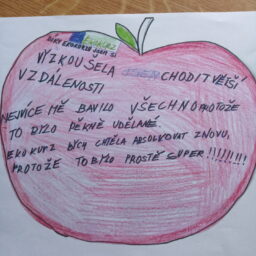 DÍKY EKOKURZU JSEM SI
VYZKOUŠELA CHODIT VĚTŠÍ
VZDÁLENOSTI
NEJVÍCE MĚ BAVILO VŠECHNO PROTOŽE
TO BYLO PĚKNĚ UDĚLANÉ.
EKOKURZ BYCH CHTĚLA ABSOLVOVAT ZNOVU,
PROTOŽE TO BYLO PROSTĚ SUPER!!!!!!!!